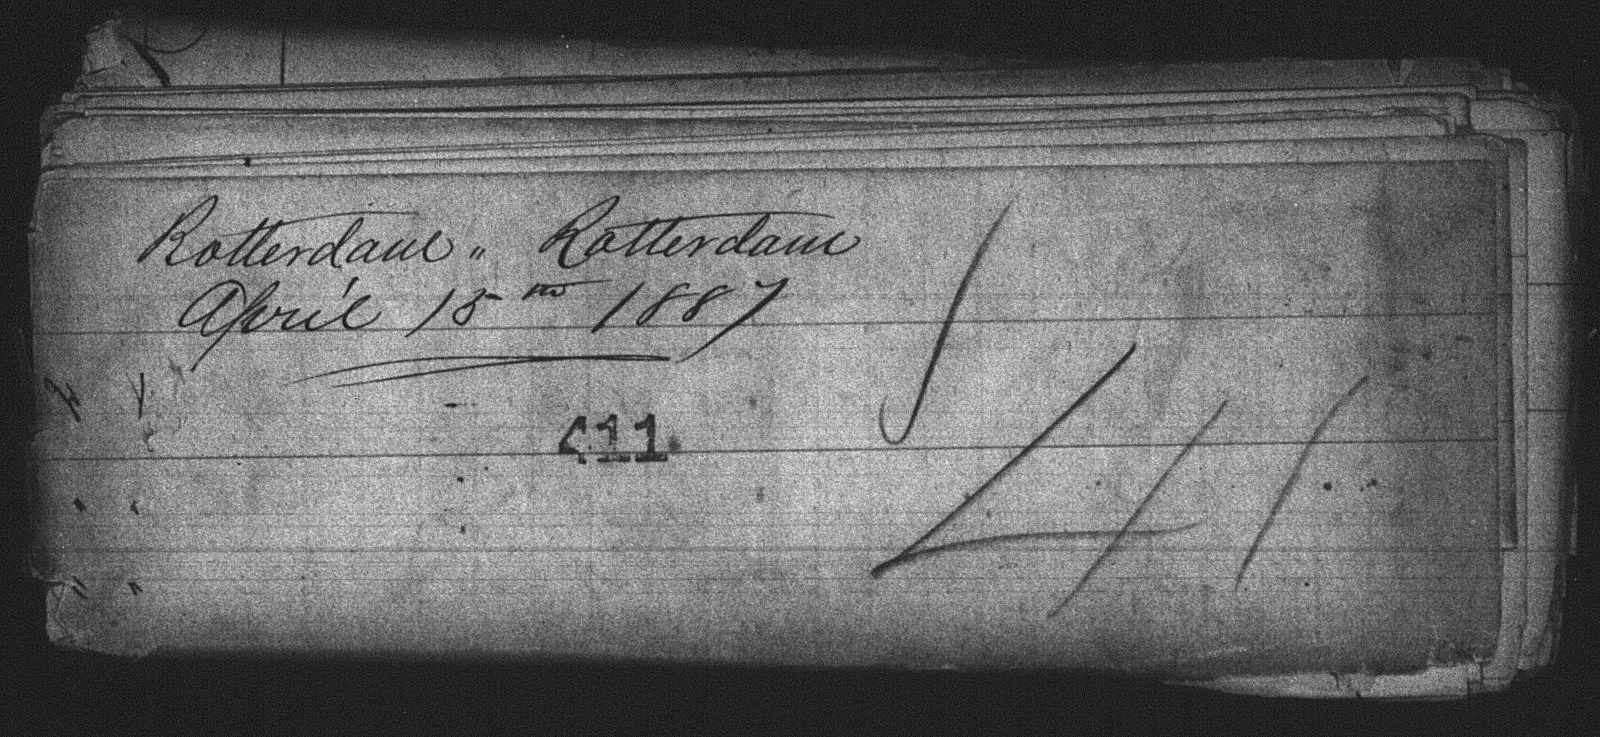 Rotterdam „ Rotterdam
April 15th 1887
411
411